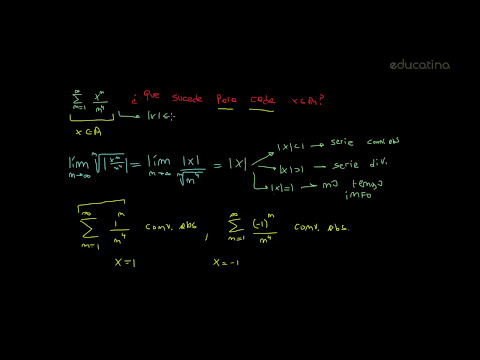 educatina
∞ Σ m=1 x^m/m^4 ¿ Que sucede para cada x∈A?
x∈A |x|≤
lim m→∞ m√|x^m/m^4| = lim m→∞ |x|/m√m^4 = |x|
|x|<1 → serie conv. abs
|x|>1 → serie div.
|x|=1 → no tengo
iNFO
∞ Σ m=1 1^m/m^4 conv. abs , ∞ Σ m=1 (-1)^m/m^4 conv. abs.
x=1 x=-1